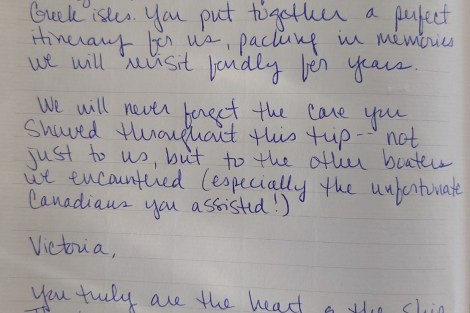 Greek isles. You put together a perfect
itinerary for us, packing in memories
we will revisit fondly for years.
We will never forget the care you
showed throughout this trip -- not
just to us, but to the other boaters
we encountered (especially the unfortunate
Canadians you assisted!)
Victoria,
You truly are the heart o the ship